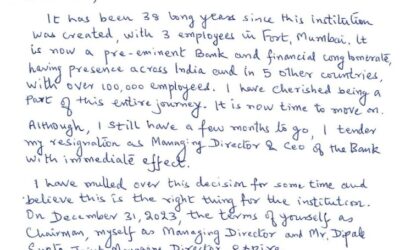 It has been 38 long years since this institution
was created, with 3 employees in Fort, Mumbai. It
is now a pre-eminent Bank and financial conglomerate,
having presence across India and in 5 other countries,
with over 100,000 employees. I have cherished being a
part of this entire journey. It is now time to move on.
Although, I still have a few months to go, I tender
my resignation as Managing Director & CEO of the Bank
with immediate effect.
I have mulled over this decision for some time and
believe this is the right thing for the institution.
On December 31, 2023, the terms of yourself as
Chairman, myself as Managing Director and Mr. Dipak